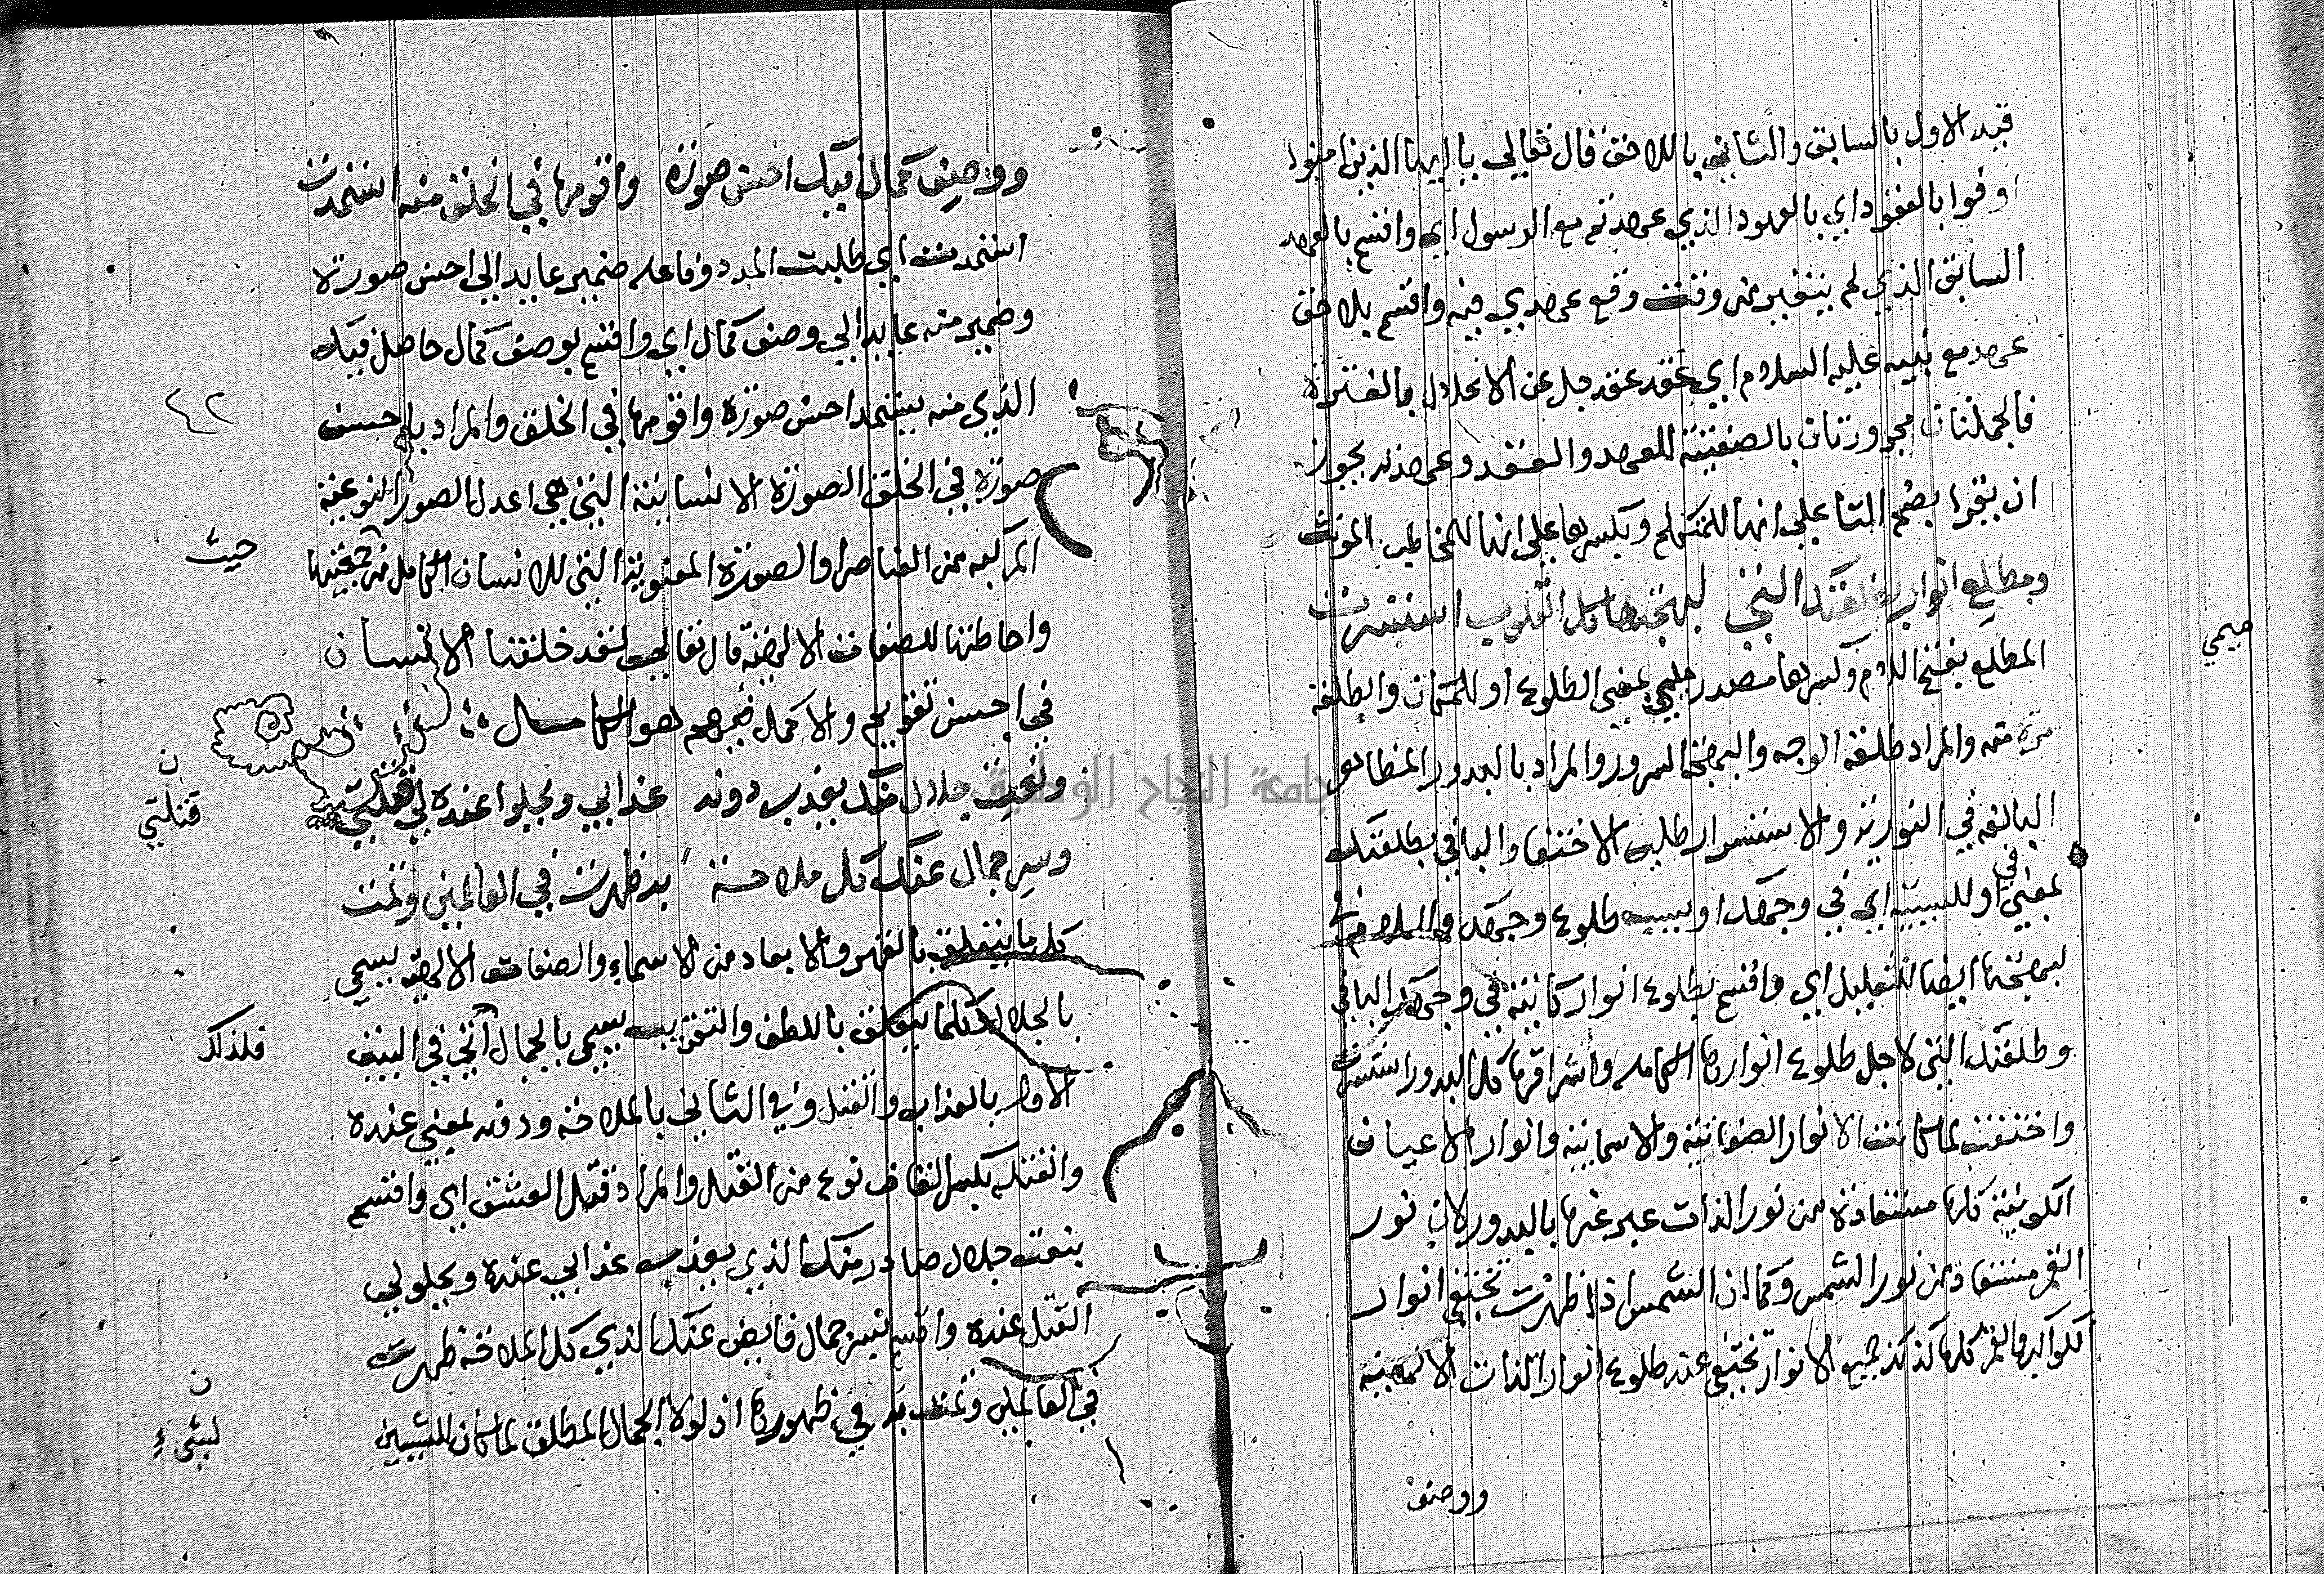 قيد الاول بالسابق والثاني باللاحق قال تعالي يا ايها الذين امنوا
اوفوا بالعقود اي بالعهود الذي عهدته مع الرسول اي واقسم بالعهد
السابق الذي لم يتغير من وقت وقع عهدي فيه واقسم بلاحق
عهد مع نبيه عليه السلام اي عقد عقد جل عن الانحلال بالفترة
فالجملتان مجرورتان بالصفتية للعهد والعقد وعهدته يجوز
ان يقرا بضم التا علي انها للمتكلم وبكسرها علي انها للمخاطب المونث
ومطلع انوار بطلعتك التي لبهجتها كل البدور استسرت
المطلع بفتح اللام وكسرها مصدر ميمي بمعني الطلوع او للمكان والطلعة
ميمي
مرة منه والمراد طلعة الوجه والبهجة السرور والمراد بالبدور المظاهر
البالغة في النورية والاستسرار طلب الاختفا والبا في بطلعتك
في
بمعني او للسببية اي في وجهك او بسبب طلوع وجهك واللام في
لبهجتها ايضا للتعليل اي واقسم بطلوع انوار كاينة في وجهك الباقي
وطلعتك التي لاجل طلوع انوارها الكاملة واشراقها كل البدور استسرت
واختفت لما كانت الانوار الصفاتية والاسمايية وانوار الاعيان
الكونية كلها مستفادة من نور الذات عبر عنها بالبدور لان نور
القمر مستفاد من نور الشمس وكما ان الشمس اذا ظهرت تختفي انوار
الكواكب والقمر كلها كذلك جميع الانوار تختفي عند طلوع انوار الذات الالهية
ووصف
ووصف كمال فيك احسن صورة واقومها في الخلق منه استمدت
استمدت اي طلبت المدد وفاعله ضمير عايد الي احسن صورة
وضمير منه عايد الي وصف كمال اي واقسم بوصف كمال حاصل فيك
الذي منه يستمد احسن صورة واقومها في الخلق والمراد باحسن
٤٢
صورة في الخلق الصورة الانسانية التي هي اعدل الصور النوعية
المركبة من العناصر او الصورة المعنوية التي للانسان الكامل من جمعيتها
حيث
واحاطتها للصفات الالهية قال تعالي لقد خلقنا الانسان
في احسن تقويم والاكمل فيهم هو الكامل
ونعت جلال منك يعذب دونه عذابي ويحلوا عنده لي قتلتي
ن
قتلتي
وسر جمال عنك كل ملاحة به ظهرت في العالمين وتمت
كل ما يتعلق بالقهر والابعاد من الاسماء والصفات الالهية يسمي
بالجلال وكلما يتعلق باللطف والتقريب يسمي بالجمال اتي في البيت
فلذلك
الاول بالعذاب والقتل وفي الثاني بالملاحة ودونه بمعني عنده
والقتله بكسر القاف نوع من القتل والمراد قتل العشق اي واقسم
بنعت جلال صادر منك الذي يعذب عذابي عنده ويحلو لي
القتل عنده واقسم بسر جمال فايض عنك الذي كل الملاحة ظهرت
في العالمين وتمت به في ظهورها اذ لولا الجمال المطلق لما كان للشيين
ن
لشيء
جامعة النجاح الوطنية